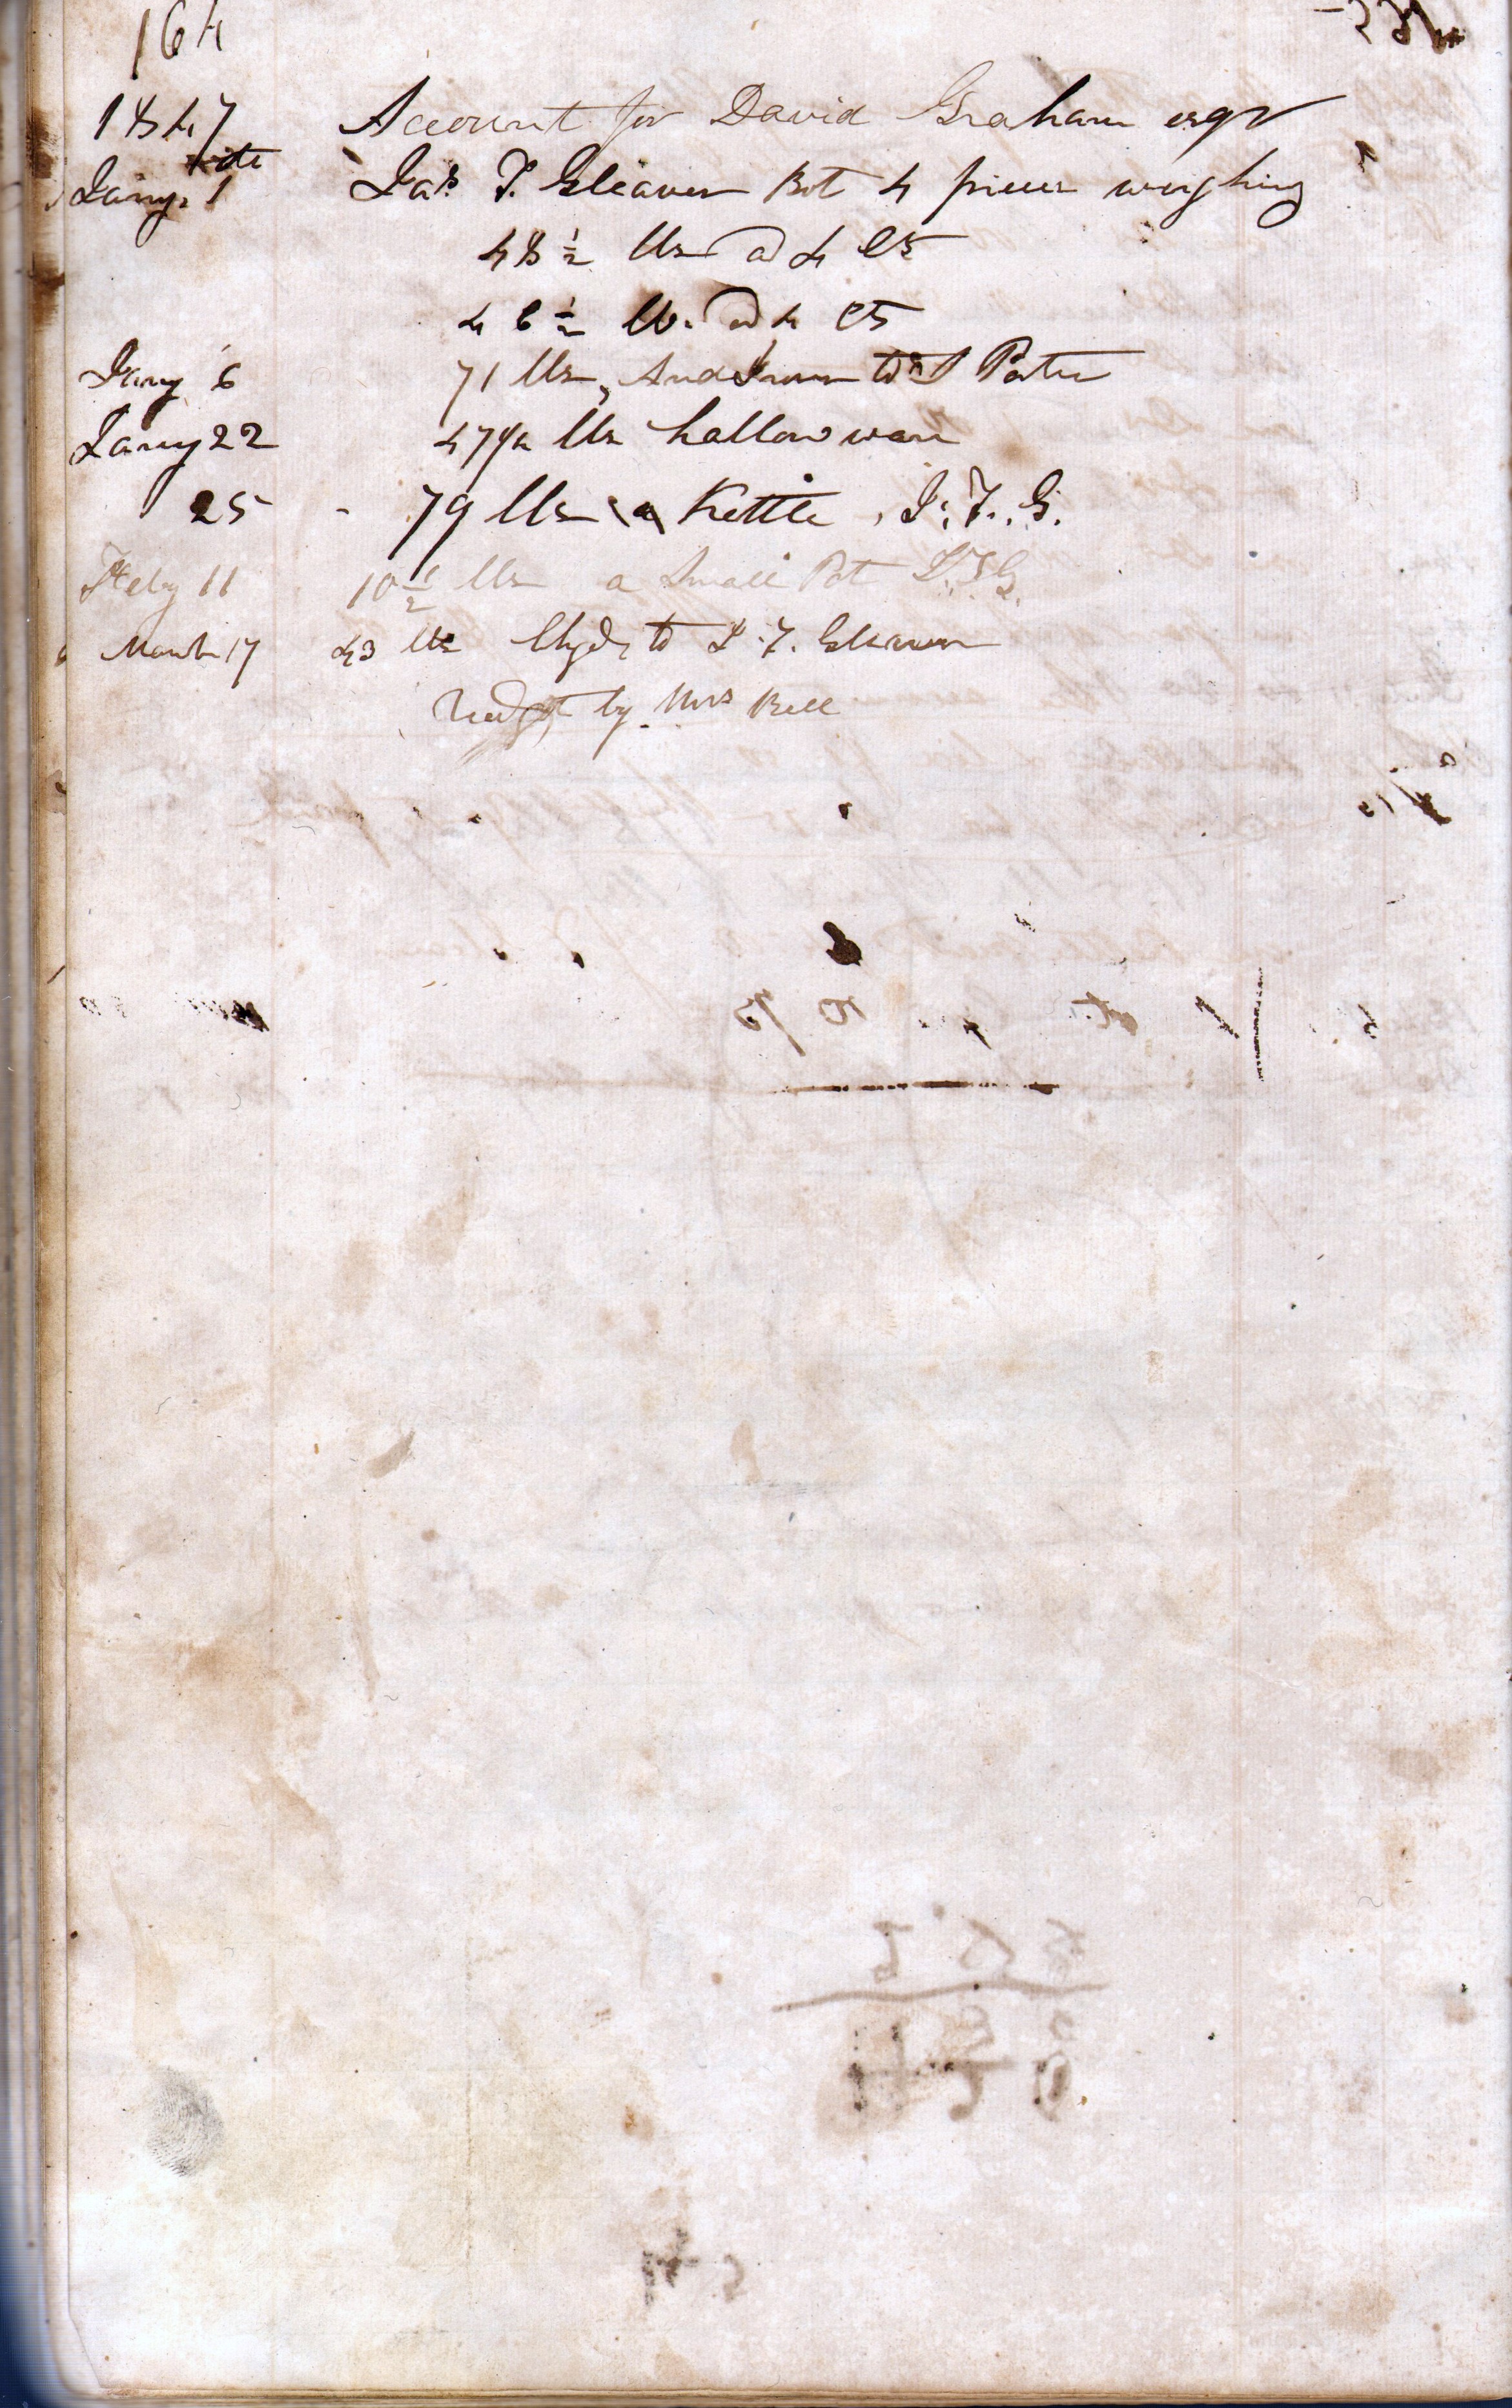 164
1847 Account for David Graham esqr
Jany 1 Jas. F. Gleaves Bot 4 pieces weighing
48 1/2 lbs @ 4 Cts
46 1/2 lbs @ 4 Cts
Jany 6 71 lbs, Anderson to Porter
Jany 22 47 1/2 lbs hallow ware
25 - 79 lbs a Kettle, J. F. G.
Feby 11 10 1/2 lbs a Small Pot J. F. G.
March 17 43 lbs Chgd, to J. F. Gleaves
by Mrs Bell